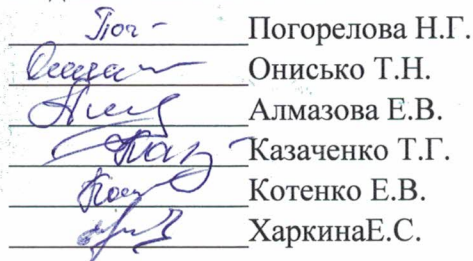 Погорелова Н.Г.
Онисько Т.Н.
Алмазова Е.В.
Казаченко Т.Г.
Котенко Е.В.
ХаркинаЕ.С.